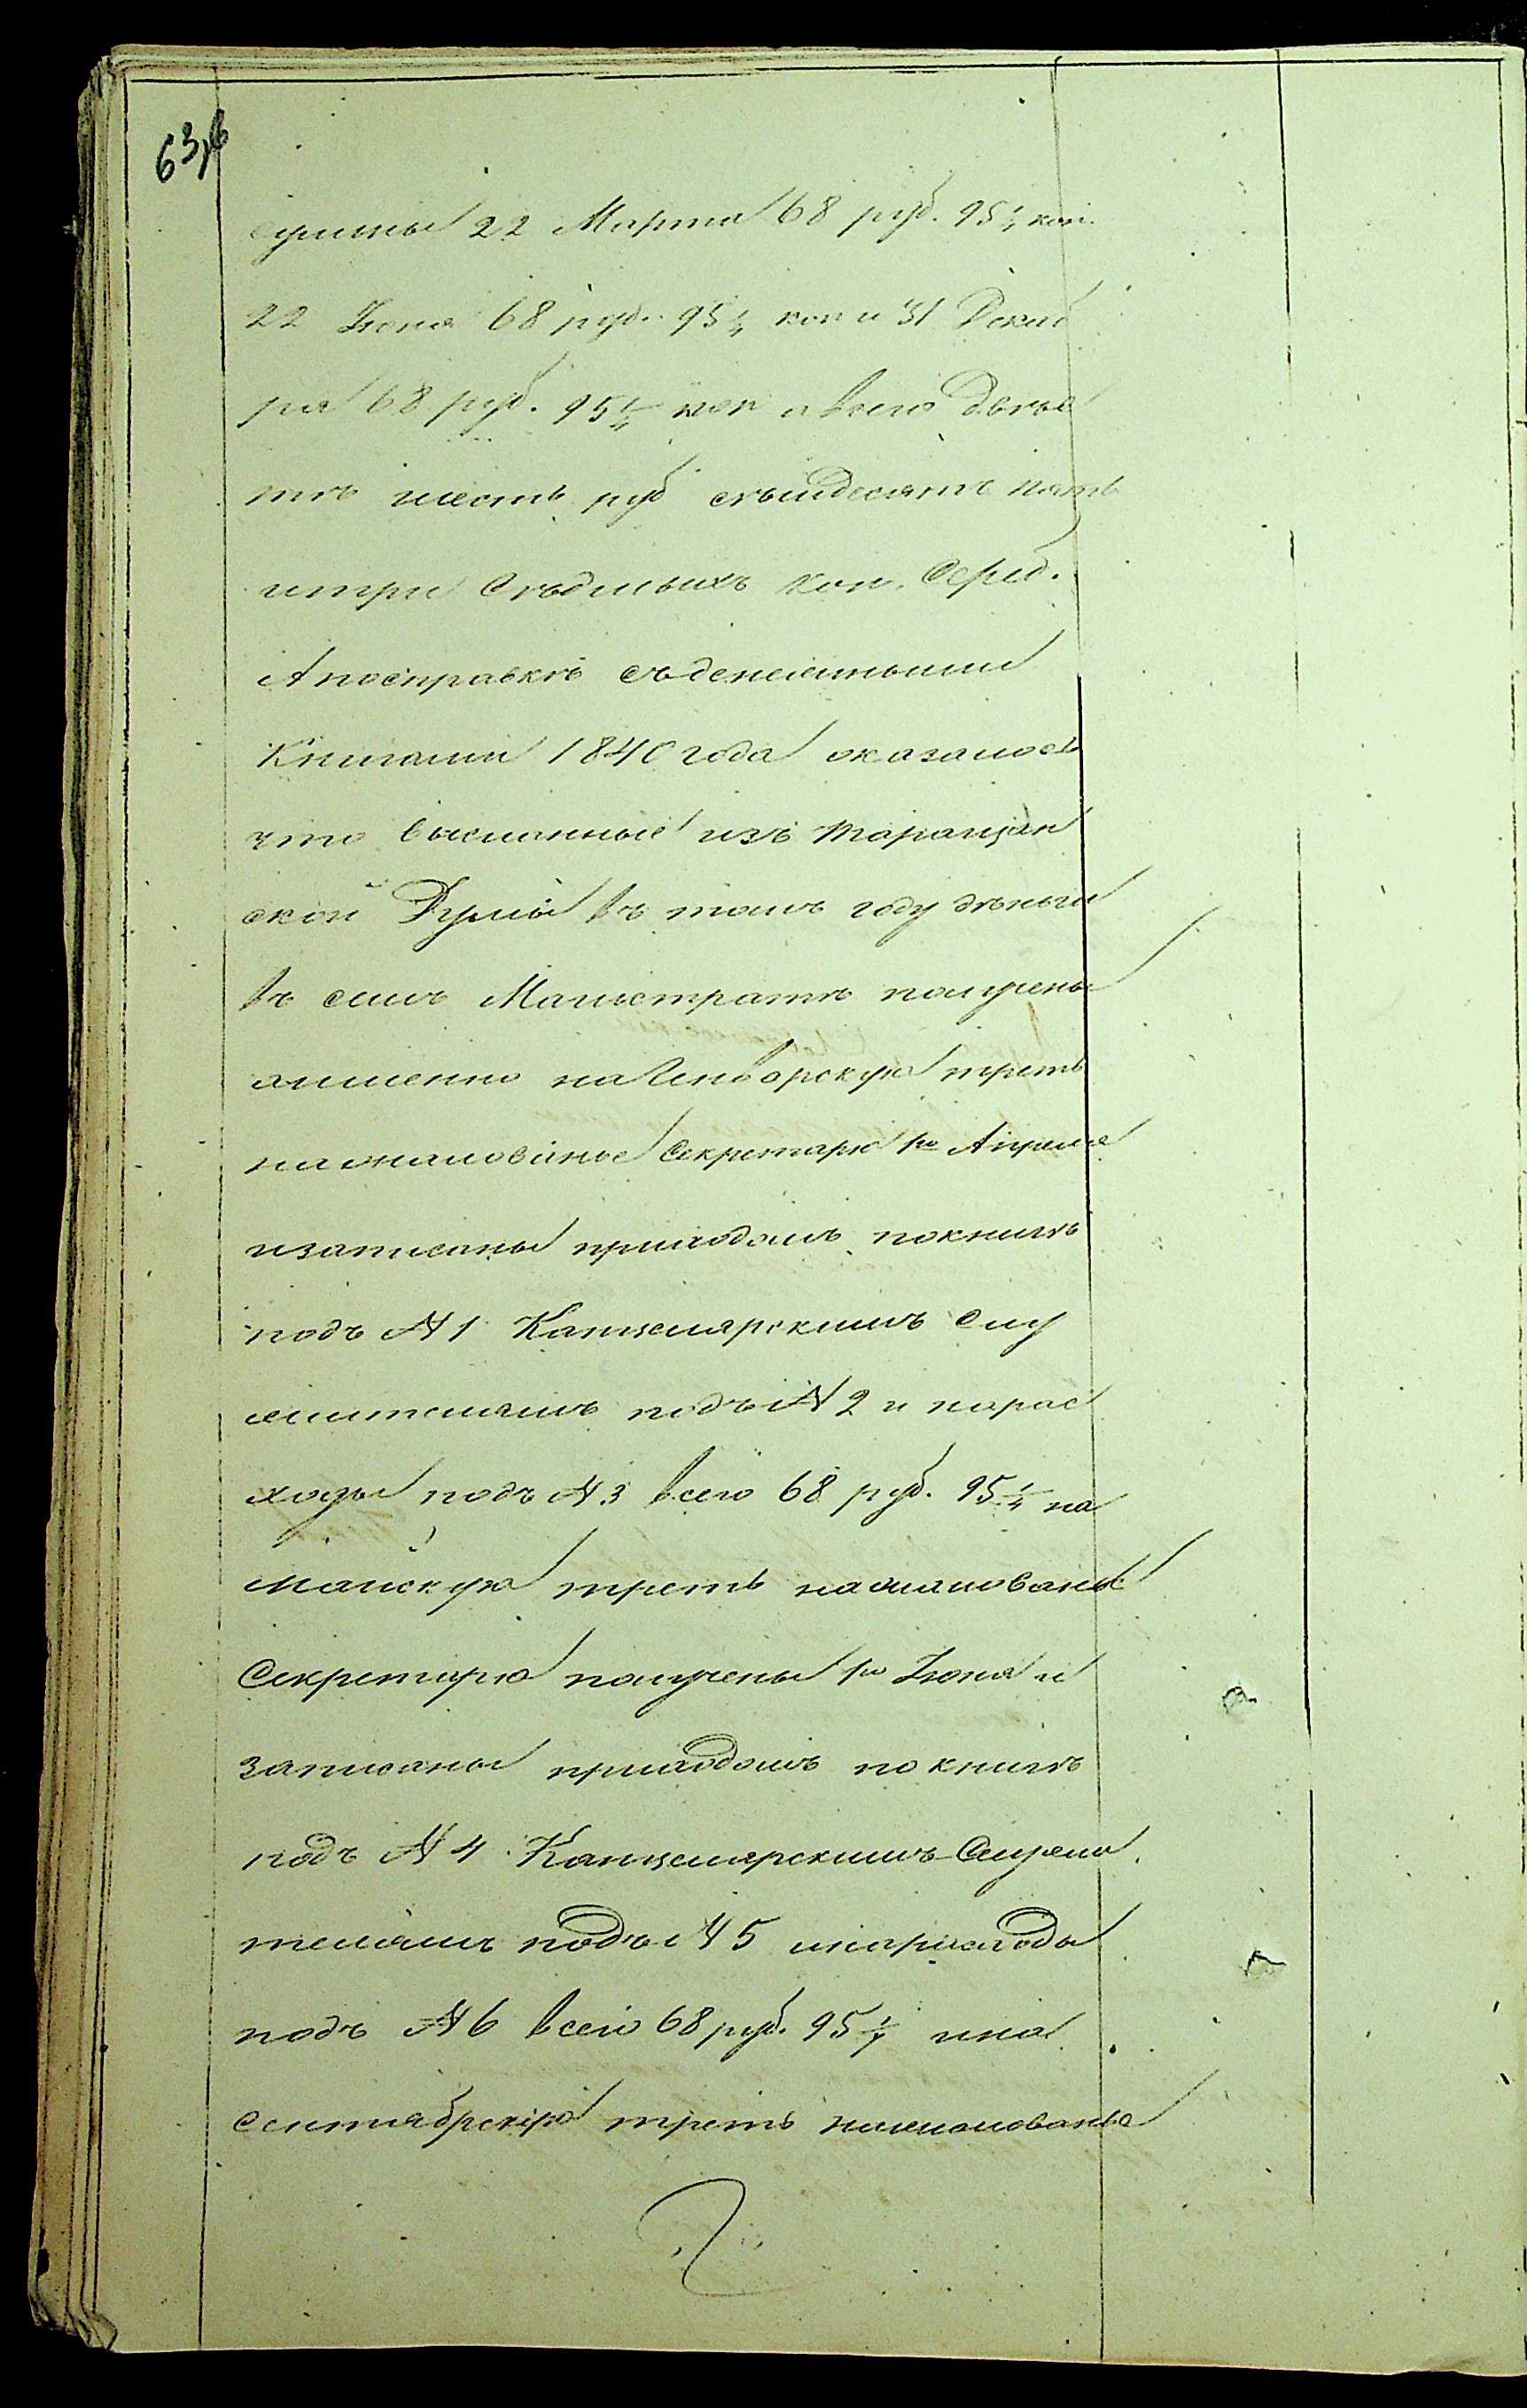 63,б
суммы 22 Марта 68 руб. 95 1/4 коп.
22 Іюня 68 руб. 95 1/4 коп и 31 Декаб
ря 68 руб. 95 1/4 коп а всего двѣс
тѣ шесть руб восѣмдесятъ пять
итри сѣдмыхъ коп. Сереб.
Апосправкѣ съденежными
Книгами 1840 года оказалось
что высланные изъ Таращан
ской Думы въ томъ году деньги
въ семъ Магистратѣ получены
аименно наГенварскую треть
нажалованье Секретарю 1го Апреля
изаписаны приходомъ покнигѣ
подъ № 1 Канцелярскимъ Слу
жителямъ подъ № 2 и нарас
ходы подъ № 3 всего 68 руб. 95 1/4 на
майскую треть нажалованье
Секретарю получены 1го Іюня и
записаны приходомъ по книгѣ
подъ № 4 Канцелярскимъ Служи
телямъ подъ № 5 инарасходы
подъ № 6 всего 68 руб. 95 1/4 ина
сентябрскую треть нажалованье